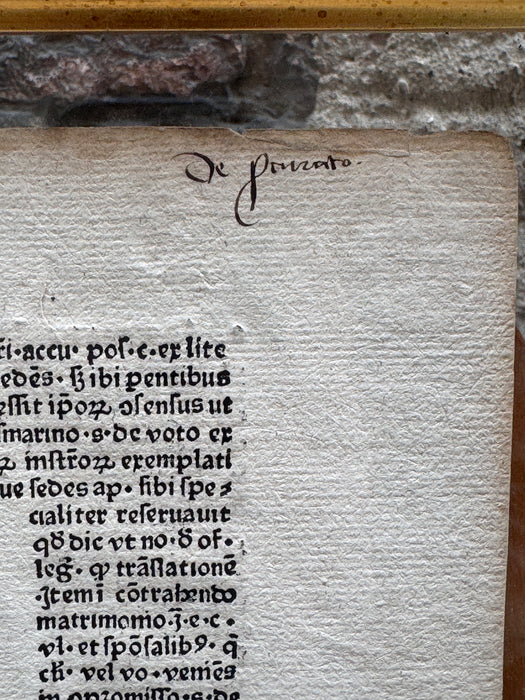 De ꝑiurato.
r̄i·accu· poſ·c·ex lite
edēs· ibi ꝑentibus
eſſit ip̄oꝝ ↄſenſus ut
ſmarino·s·de voto ex
ꝝ inſtr̄oꝝ exemplati
ue ſedes ap· ſibi ſpe⸗
cialiter reſeruauit
dic vt no· of·
leḡ· trāſlationē
·Item ī cōtrahendo
matrimonio·J·e·c·
vl· et ſpōſalibꝰ· q̄
vel vo· veniēs
in opromiſſo·s·de